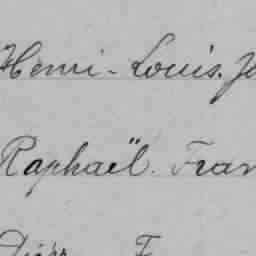 Henri-Louis. Jo
Raphaël. Fran